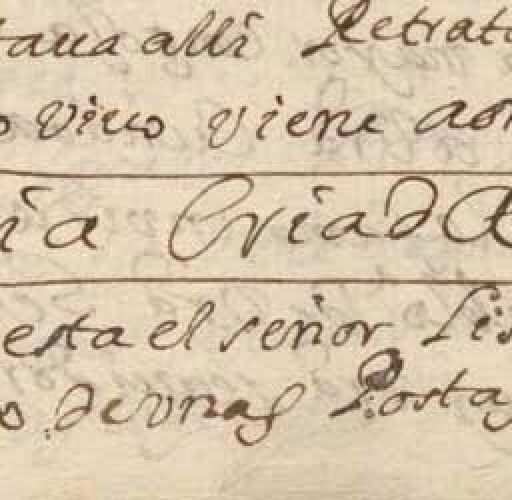 taua alli Retrato
o viuo viene aor
ia Criada
esta el señor Lis
os de vnas Postas